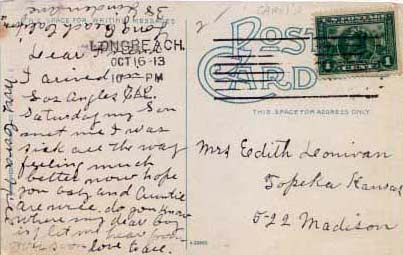 THIS SPACE FOR WRITING MESSAGES
LONG BEACH,
OCT 16-13
10 - PM
CAL.
Dear
I arived in
Los Angles
Saturday my Son
met me I was
sick all the way
feeling much
better now hope
you baby and Auntie
are well. do you know
where my dear boy
is? let me hear from
you soon love to all.
POST
CARD
THIS SPACE FOR ADDRESS ONLY.
1 CENT 1
Mrs Eedith Leonivan
Topeka Kansas
522 Madison